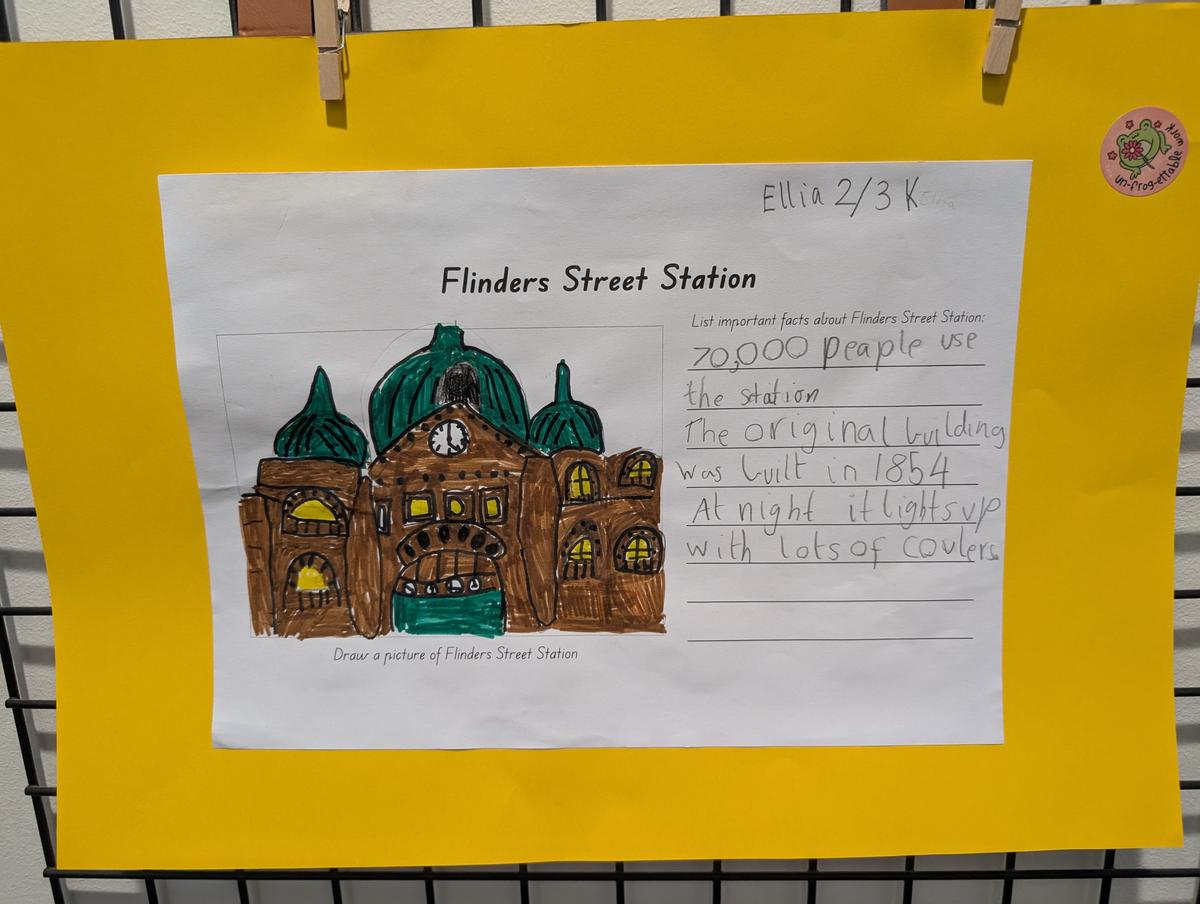 un-frog-ettable work
Ellia 2/3 K Ellia
Flinders Street Station
List important facts about Flinders Street Station:
70,000 peaple use
the station
The original building
was built in 1854
At night it lights up
with lots of coulers
Draw a picture of Flinders Street Station